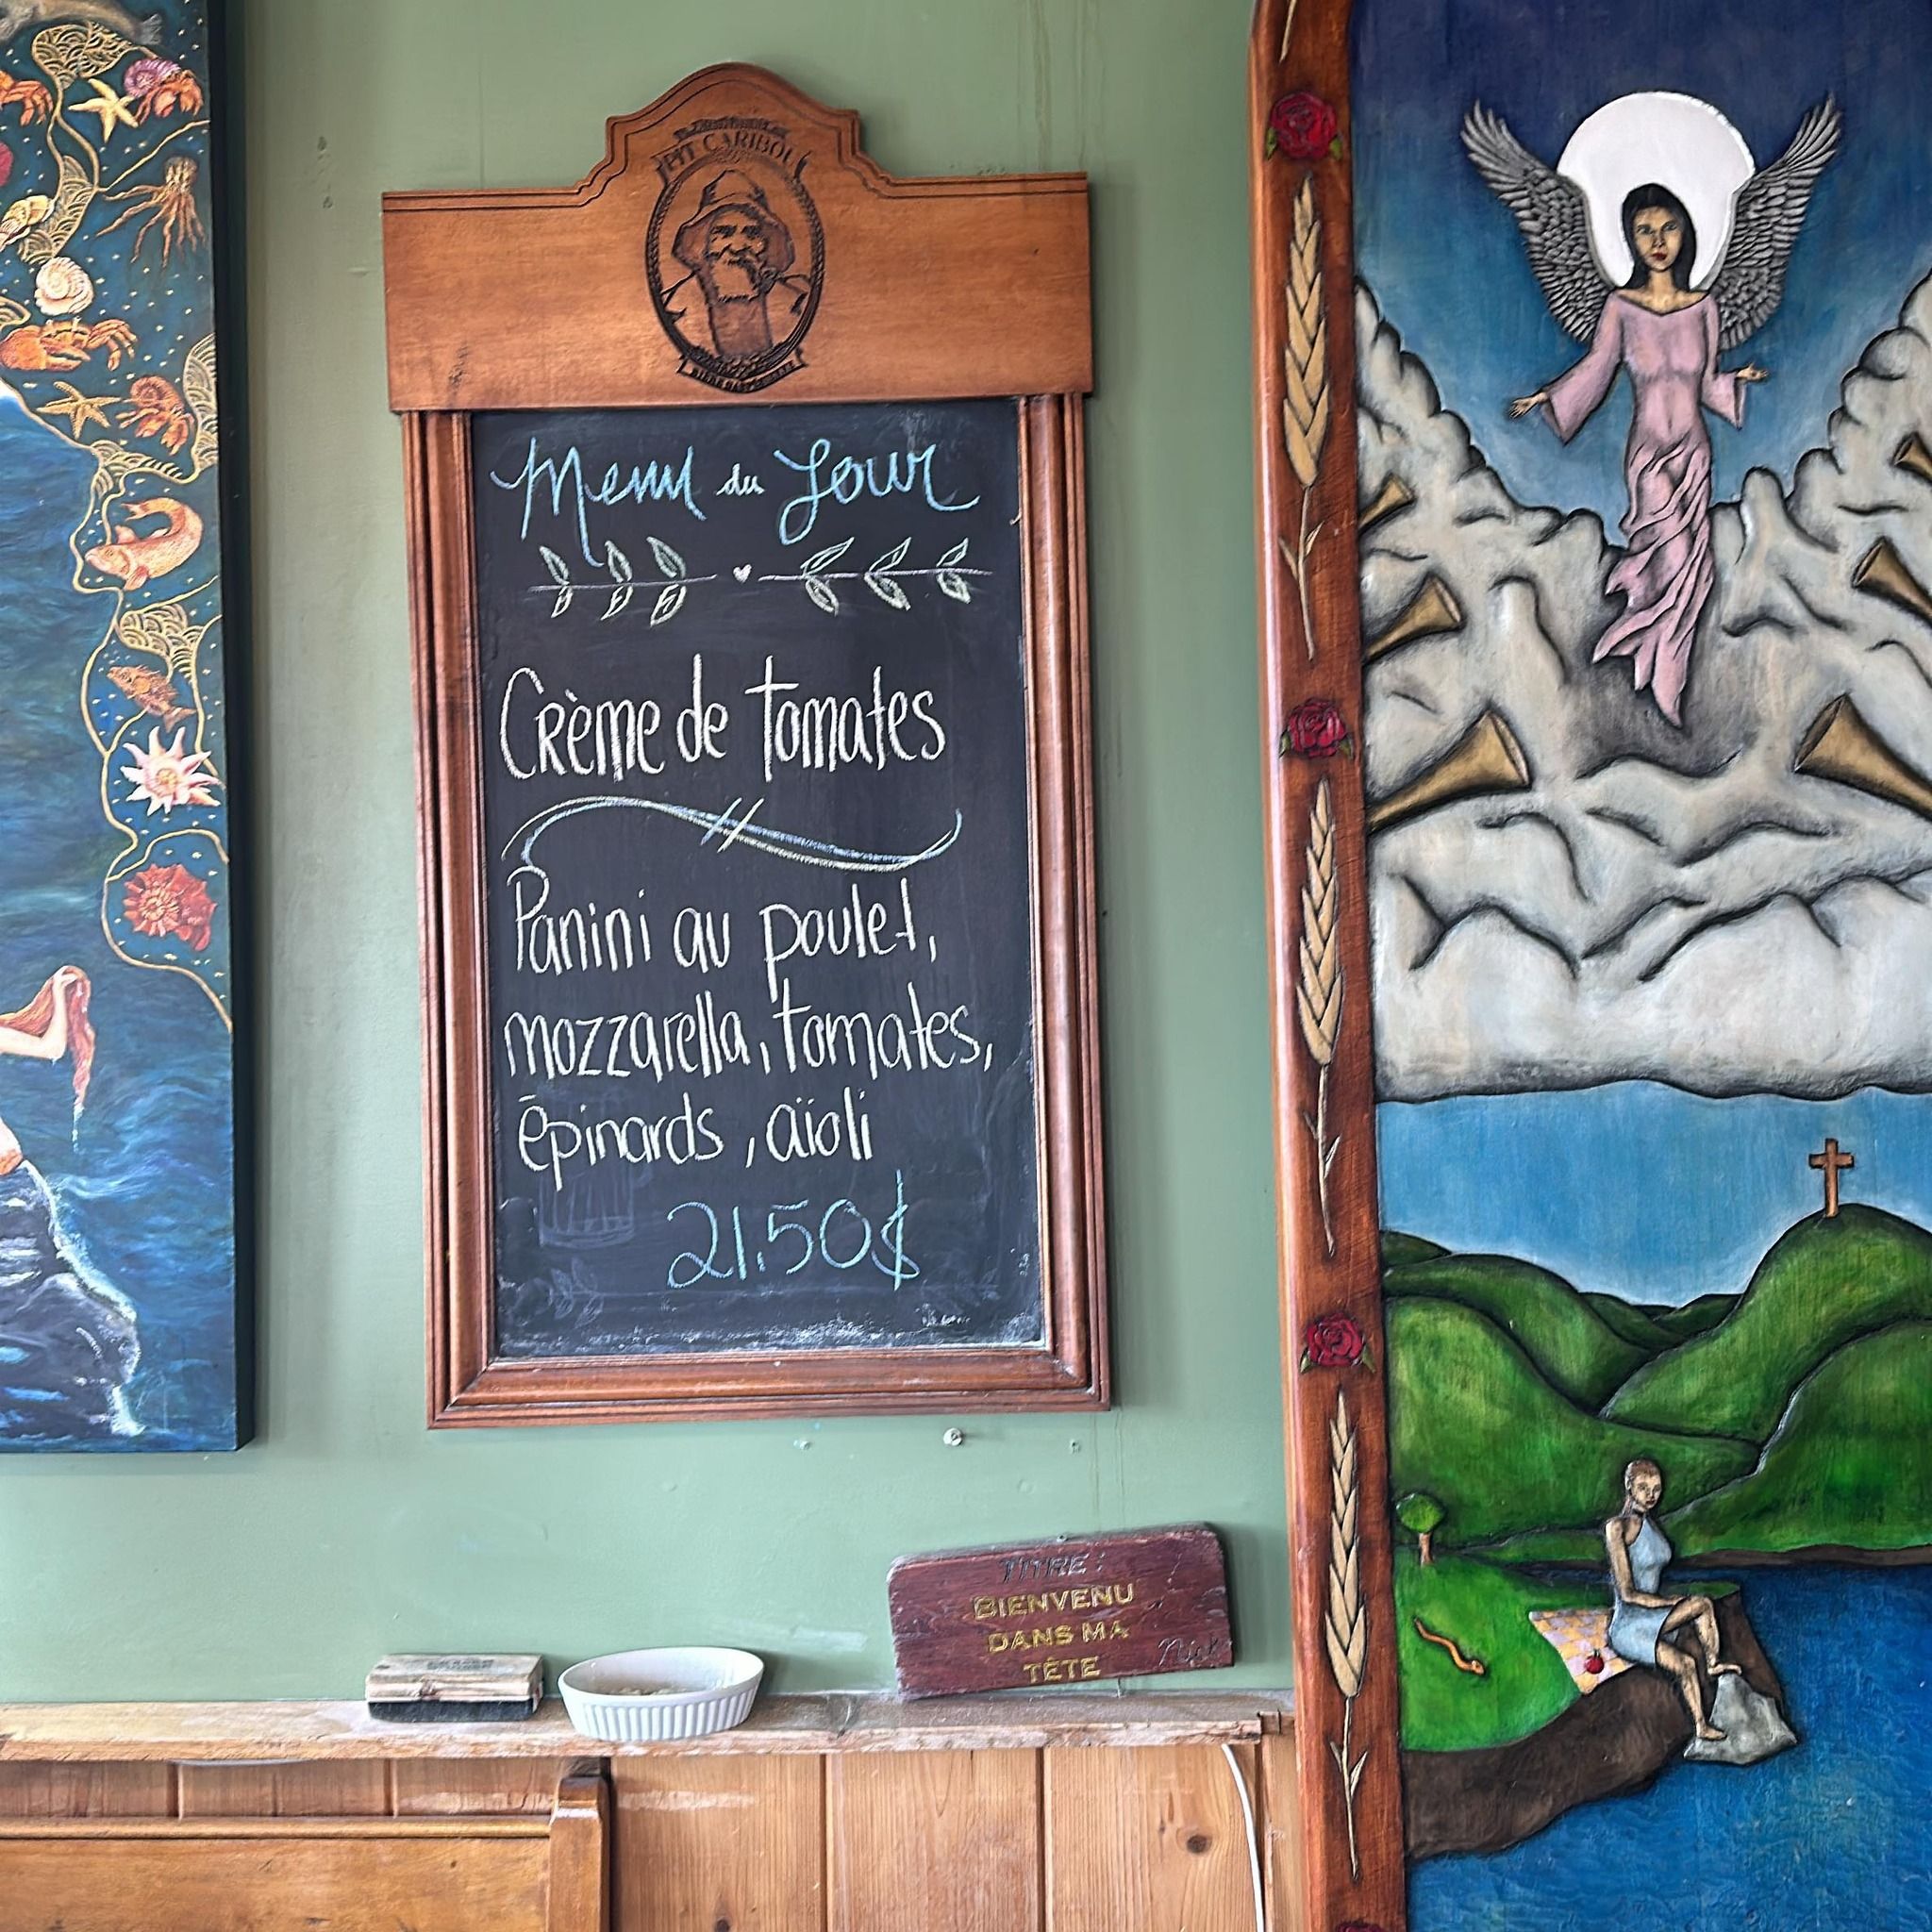 PIT CARIBOU
Menu du Jour
Crème de tomates
Panini au poulet,
mozzarella, tomates,
épinards, aïoli
21.50$
TITRE :
BIENVENU
DANS MA
TÊTE